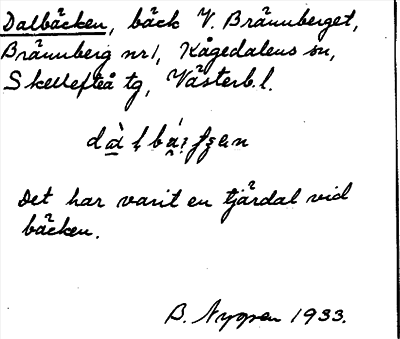 Dalbäcken, bäck V. Brännberget,
Brännberg nr 1, Kågedalens sn,
Skellefteå tg, Västerb. l.
Det har varit en tjärdal vid
bäcken.
B. Nyman 1933.